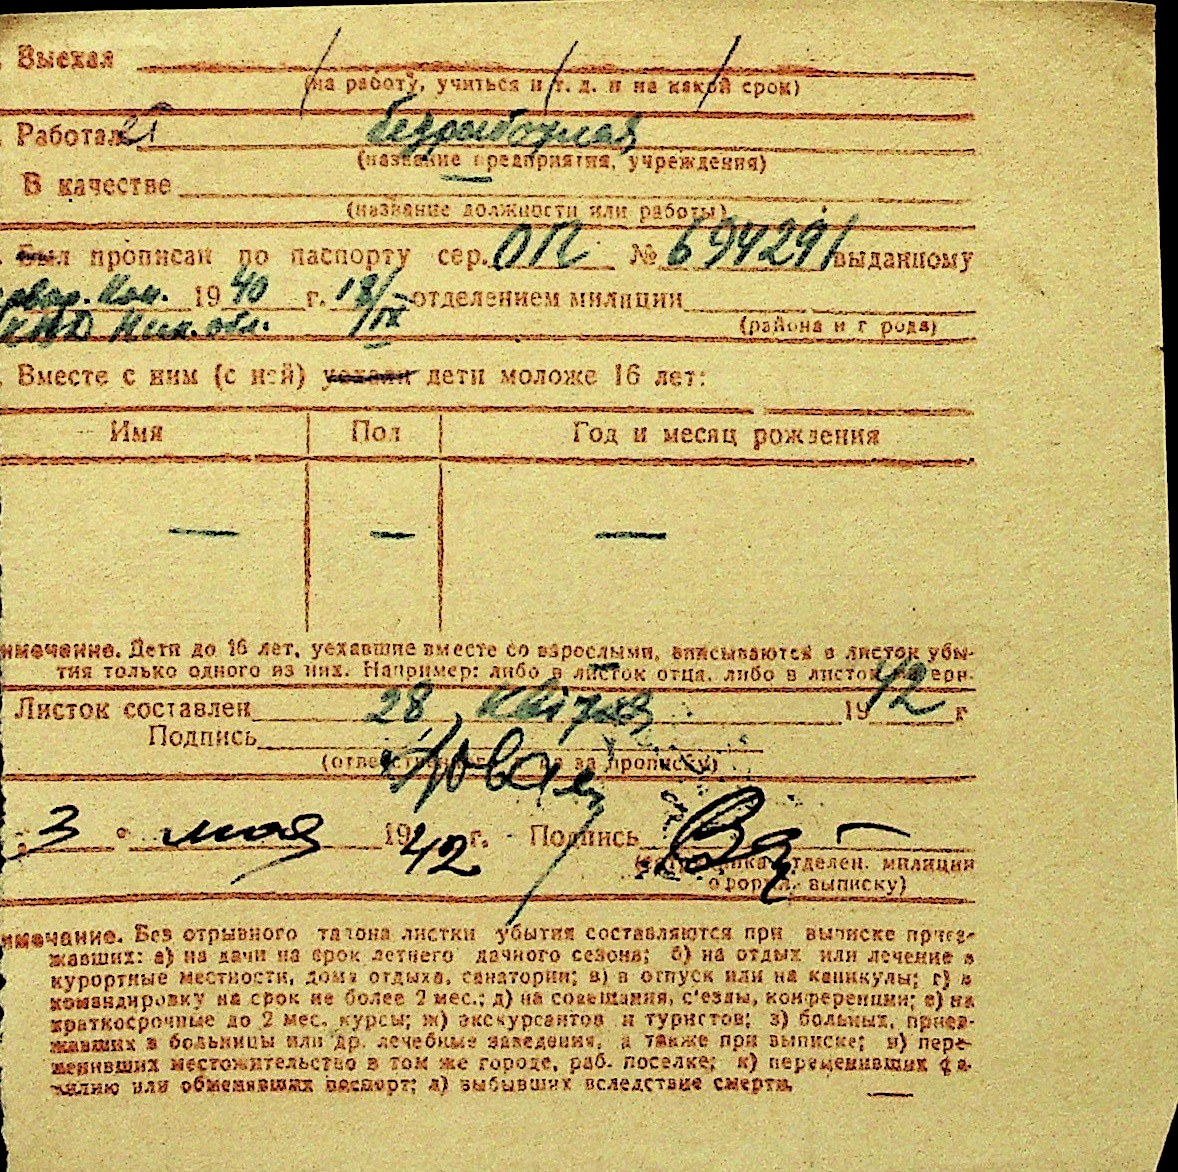 Выехал
(на работу, учиться и т. д. и на какой срок)
Работал безработная
(название предприятия, учреждения)
В качестве
(название должности или работы)
Был прописан по паспорту сер. ОП № 694291 выданному
1940 г. 18/IX отделением милиции
НКВД Ник. обл. (района и города)
Вместе с ним (с ней) уехали дети моложе 16 лет:
Имя Пол Год и месяц рождения
— — —
имечание. Дети до 16 лет, уехавшие вместе со взрослыми, вписываются в листок убы-
тия только одного из них. Например: либо в листок отца, либо в листок матери.
Листок составлен 28 квітня 1942 г
Подпись
(ответственного лица за прописку)
3 " мая 1942 г. Подпись
отделен. милиции
оформ. выписку)
имечание. Без отрывного талона листки убытия составляются при выписке приез-
жавших: а) на дачи на срок летнего дачного сезона; б) на отдых или лечение в
курортные местности, дома отдыха, санатории; в) в отпуск или на каникулы; г) в
командировку на срок не более 2 мес.; д) на совещания, с'езды, конференции; е) на
краткосрочные до 2 мес. курсы; ж) экскурсантов и туристов; з) больных, приез-
жавших в больницы или др. лечебные заведения, а также при выписке; и) пере-
менивших местожительство в том же городе, раб. поселке; к) переменивших фа-
милию или обменявших паспорт; л) выбывших вследствие смерти.